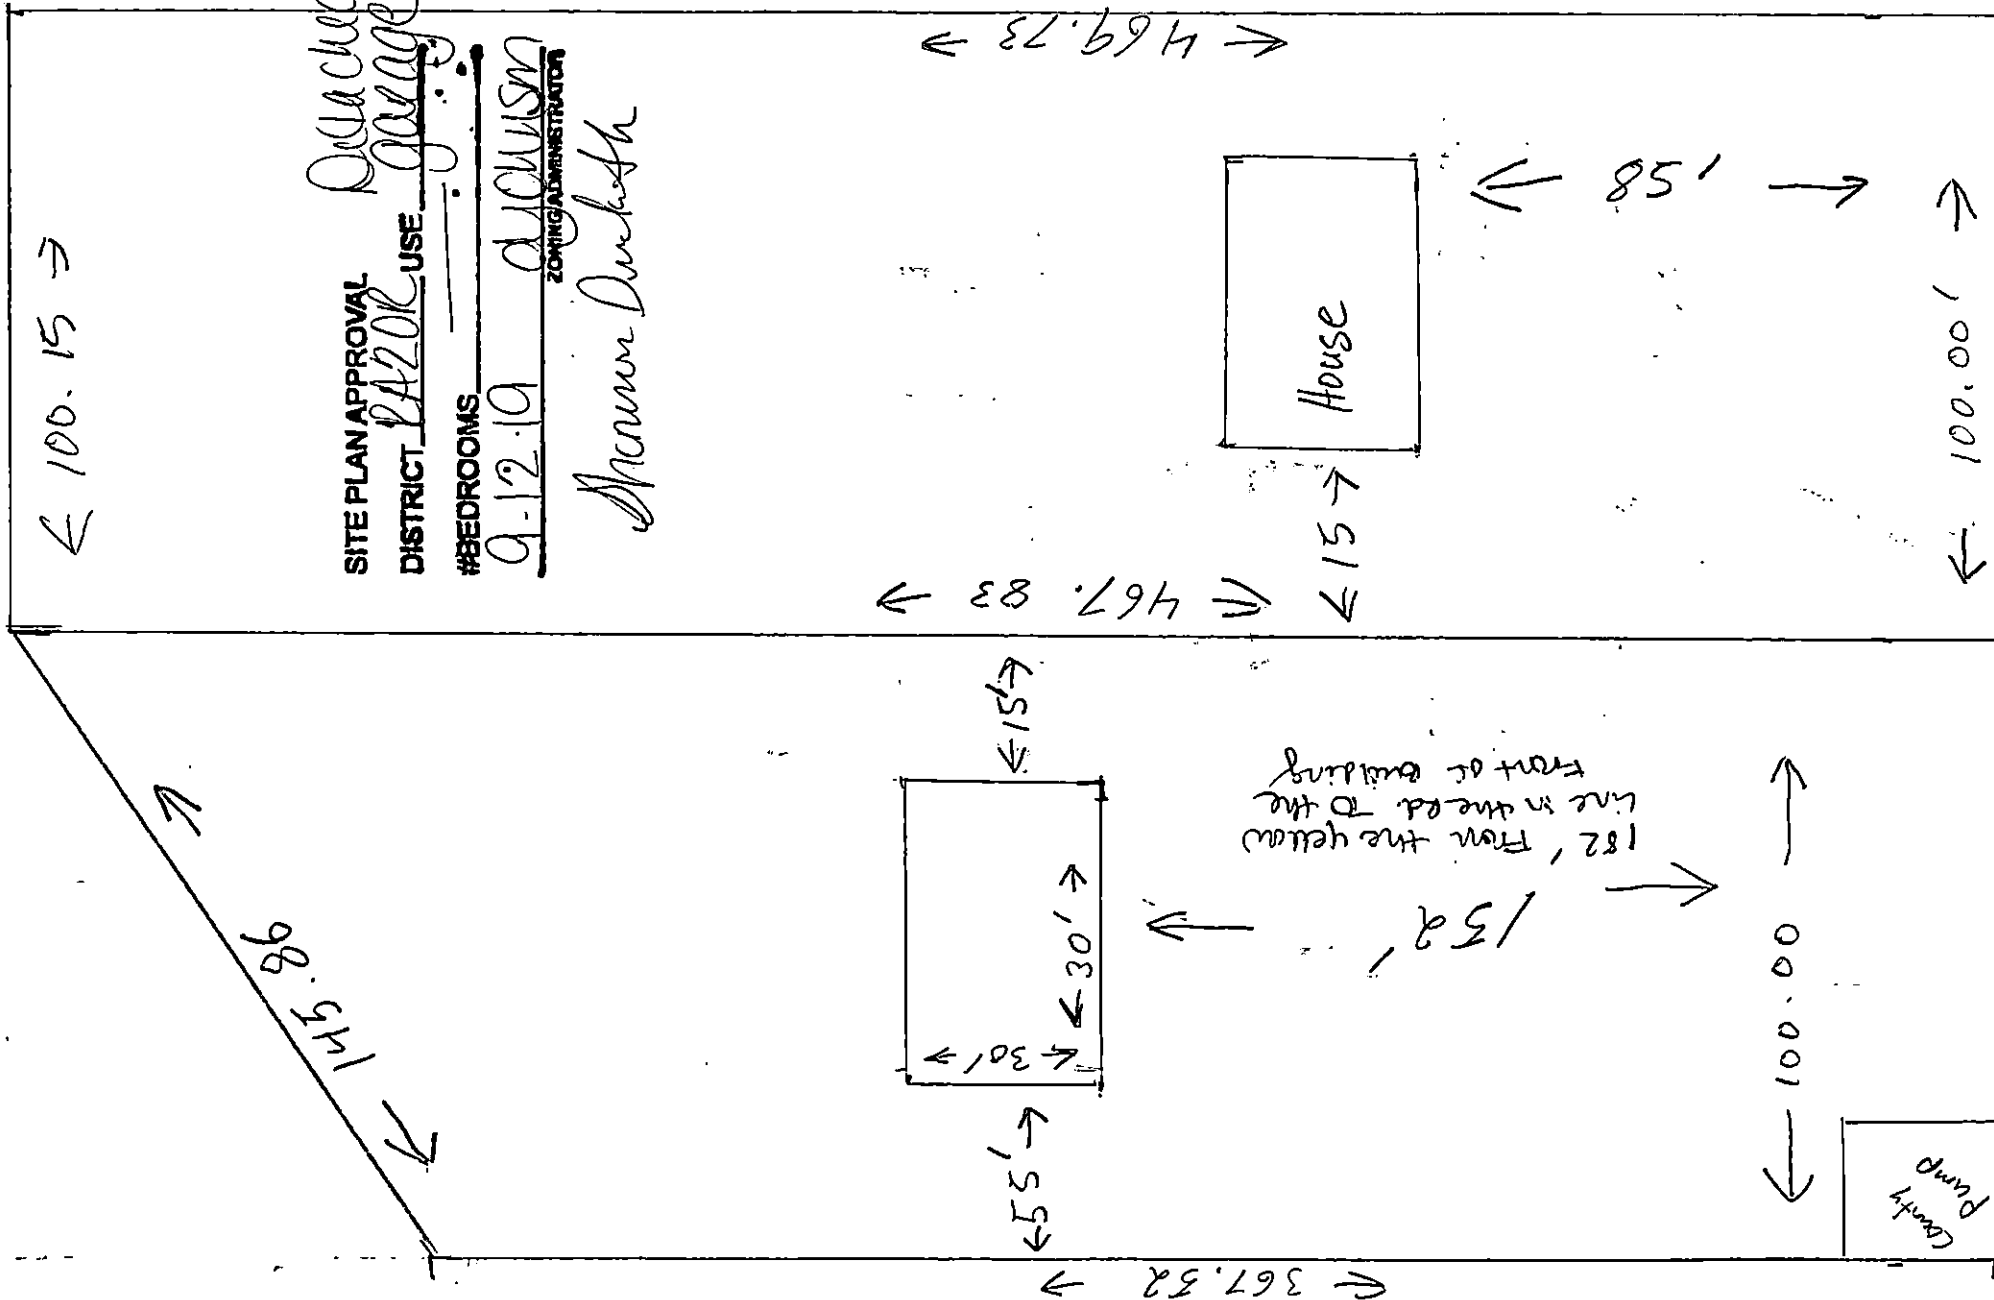 ← 100.15 →
SITE PLAN APPROVAL
DISTRICT RA20R USE garage
#BEDROOMS
9-12-19
ZONING ADMINISTRATOR
← 469.73 →
← 467.83 →
House
← 15 →
58'
← 100.00' →
145.86
← 15' →
← 30' →
← 30' →
← 55' →
152'
182' From the yellow
line in the rd. To the
Front of Building
← 100.00 →
← 367.52 →
County
Pump